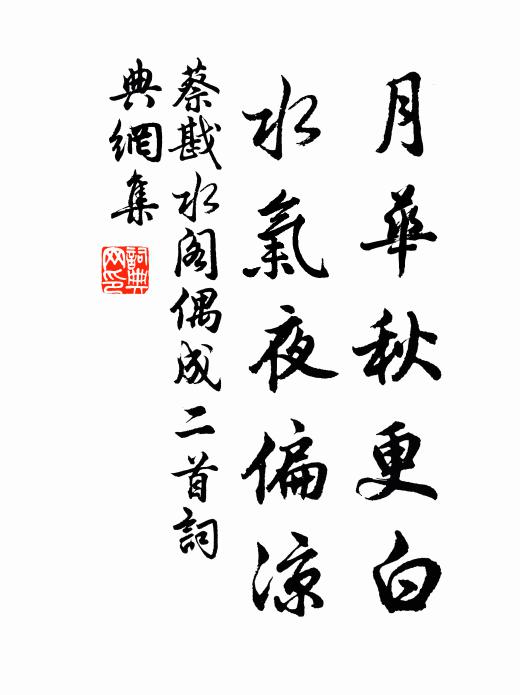 月華秋更白
水氣夜偏涼
蔡戡水阁偶成二首詞
典網集
詞典
网印